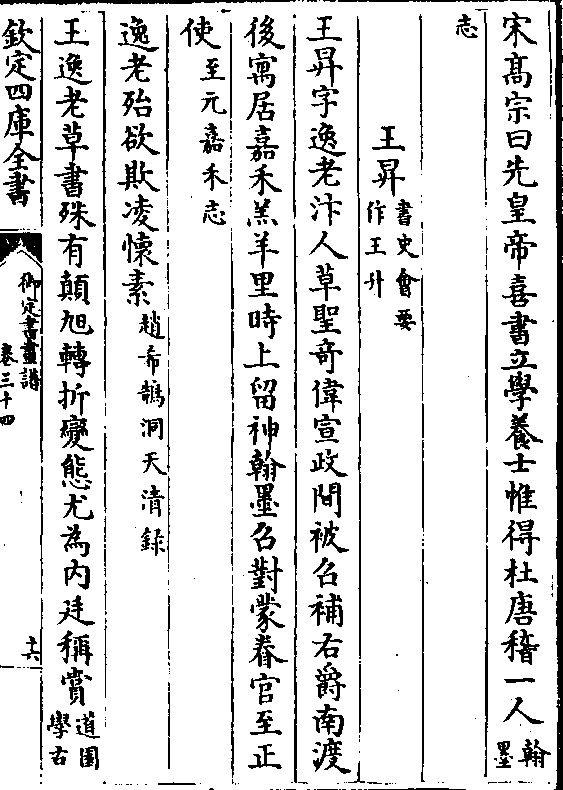 宋髙宗曰先皇帝喜書立學養士惟得杜唐稽一人翰墨
志
王昇書史會要作王升
王昇字逸老汴人草聖竒偉宣政間被召補右爵南渡
後寓居嘉禾羔羊里時上留神翰墨召對蒙眷官至正
使至元嘉禾志
逸老殆欲欺凌懐素趙希鵠洞天清録
王逸老草書殊有顛旭轉折變態尤為内廷稱賞道園學古
欽定四庫全書
御定書畫譜
卷三十四
十六